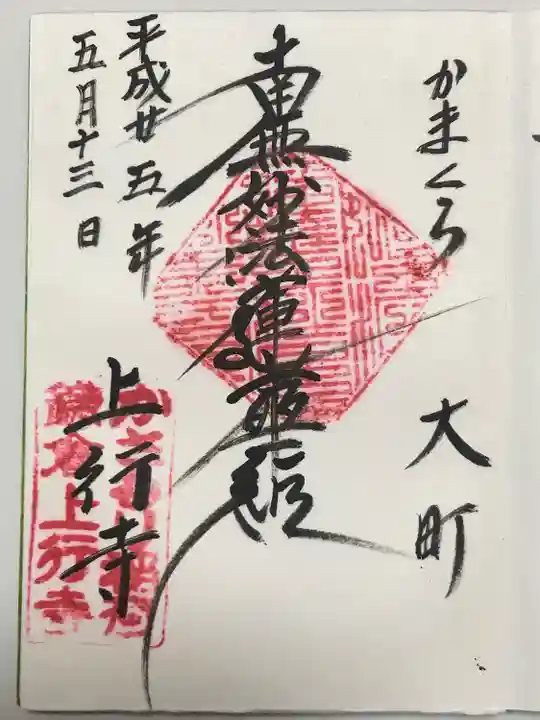 かまくら 大町
南無妙法蓮華経
平成廿五年
五月十三日
上行寺
上行寺